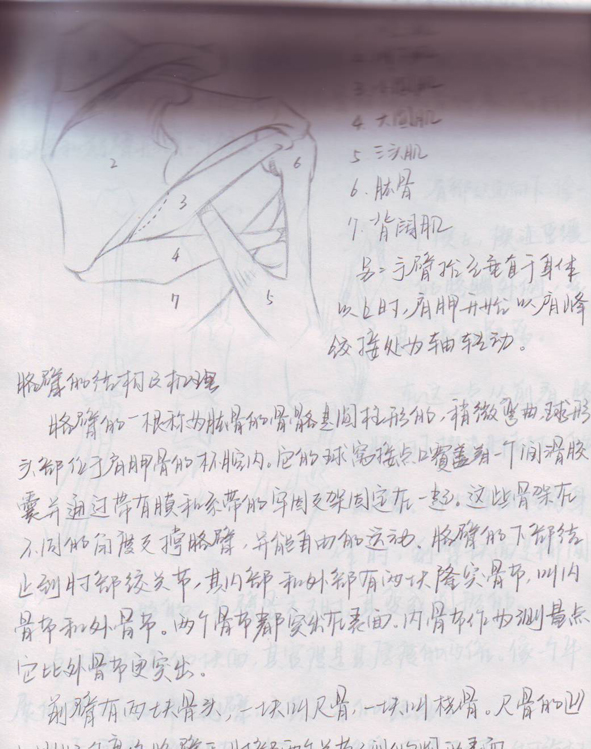 2
3
4
5
6
7
4. 大圆肌
5 三头肌
6. 肱骨
7. 背阔肌
呈：手臂抬至垂直于身体
以上时，肩胛开始以肩峰
铰接处为轴转动。
胳臂的结构及机理
胳臂的一根称为肱骨的骨骼是圆柱形的，稍微弯曲，球形
头部位于肩胛骨的杯腔内。它的球窝接点覆盖着一个润滑胶
囊并通过带有膜和系带的牢固支架固定在一起。这些骨架在
不同的角度支撑胳臂，并能自由的运动。胳臂的下部结
止到肘部铰关节，其内部和外部有两块隆突骨节，叫内
骨节和外骨节。两个骨节都突出在表面，内骨节作为测量点
它比外骨节更突出。
前臂有两块骨头，一块叫尺骨，一块叫桡骨。尺骨的